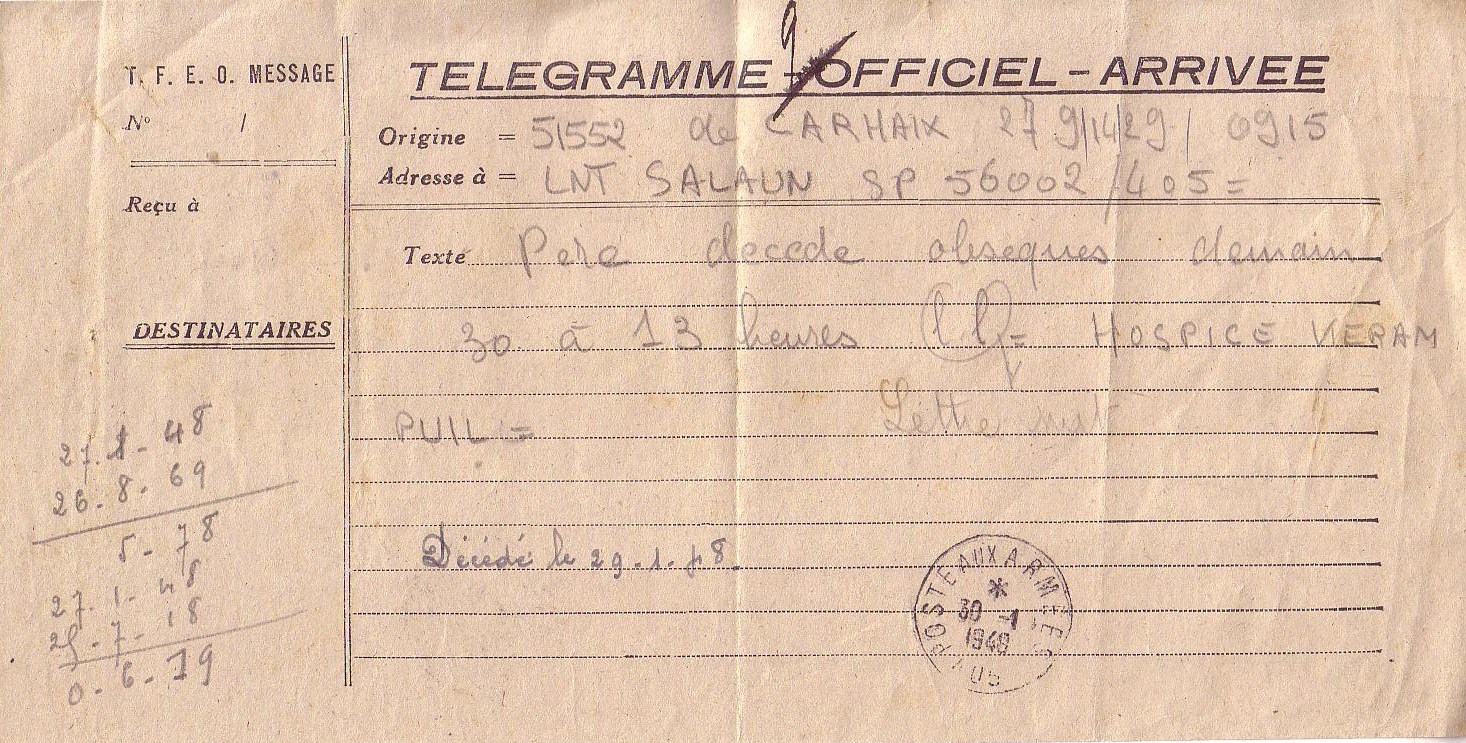 T. F. E. O. MESSAGE
N° /
Reçu à
DESTINATAIRES
27. 1 - 48
26 - 8 - 69
5 - 78
27. 1 - 48
- 7 - 18
0 - 6 - 79
9
TELEGRAMME - OFFICIEL - ARRIVEE
Origine = 51552 de CARHAIX 27 9/14/29 / 0915
Adresse à = LNT SALAUN SP 56002 / 405 =
Texte Pere decede obseques demain
30 à 13 heures = HOSPICE KERAM
PUIL =
Lettre
Décédé le 29-1-48.
POSTE AUX ARMÉES
*
30 -1
1948
405